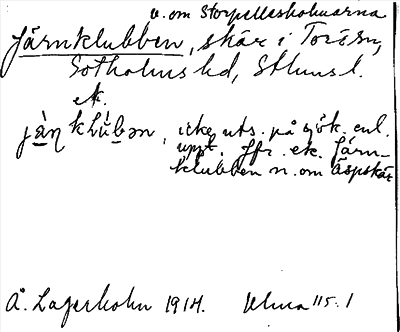 v. om Storpellesholmarna
Järnklubben, skär i Torö sn,
Sotholms hd, Sthms l.
ek.
jä̀ṇklùbən, icke uts. på sjök. enl.
uppt. Jfr. ek. Järn-
klubben n. om Äspskär
Å. Lagerholm 1914. Ulma 115:1